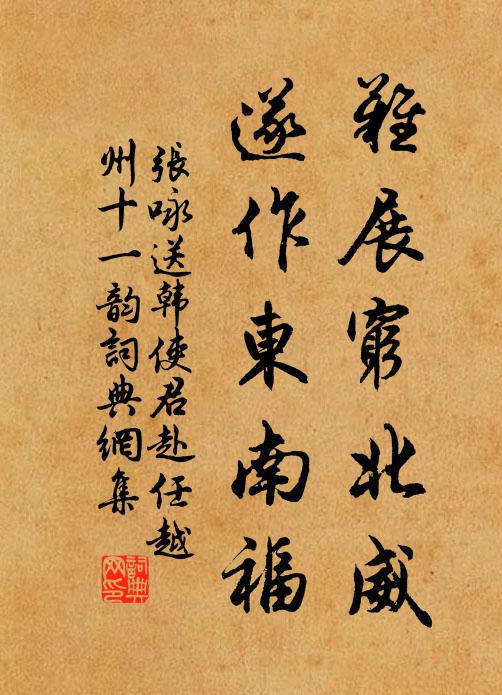 難展窮北威
遂作東南福
張咏送韩使君赴任越
州十一韵詞典網集
詞典
网印